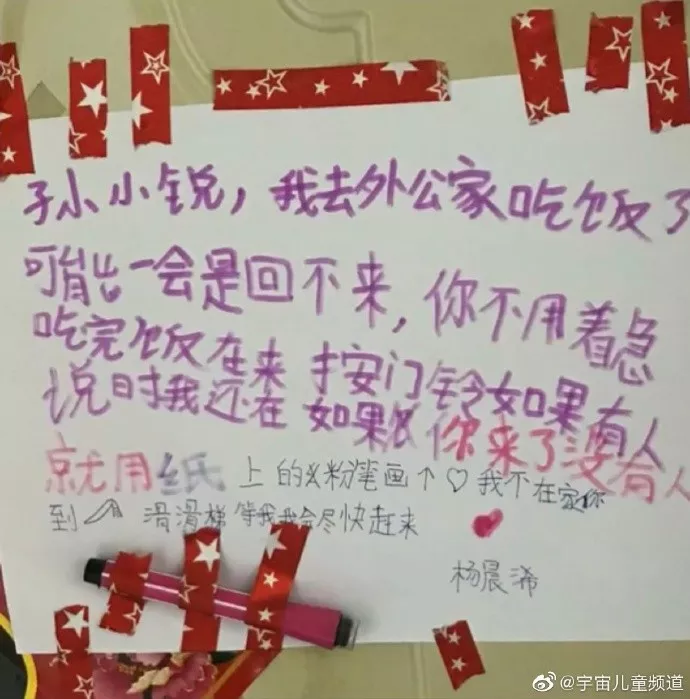 孙小锐，我去外公家吃饭了
可能一会是回不来，你不用着急
吃完饭在来 按门铃如果有人
说时我还在 如果 你来了没有人
就用纸上的粉笔画↑♡我不在家你
到 滑滑梯等我我会尽快赶来
杨晨浠
@宇宙儿童频道